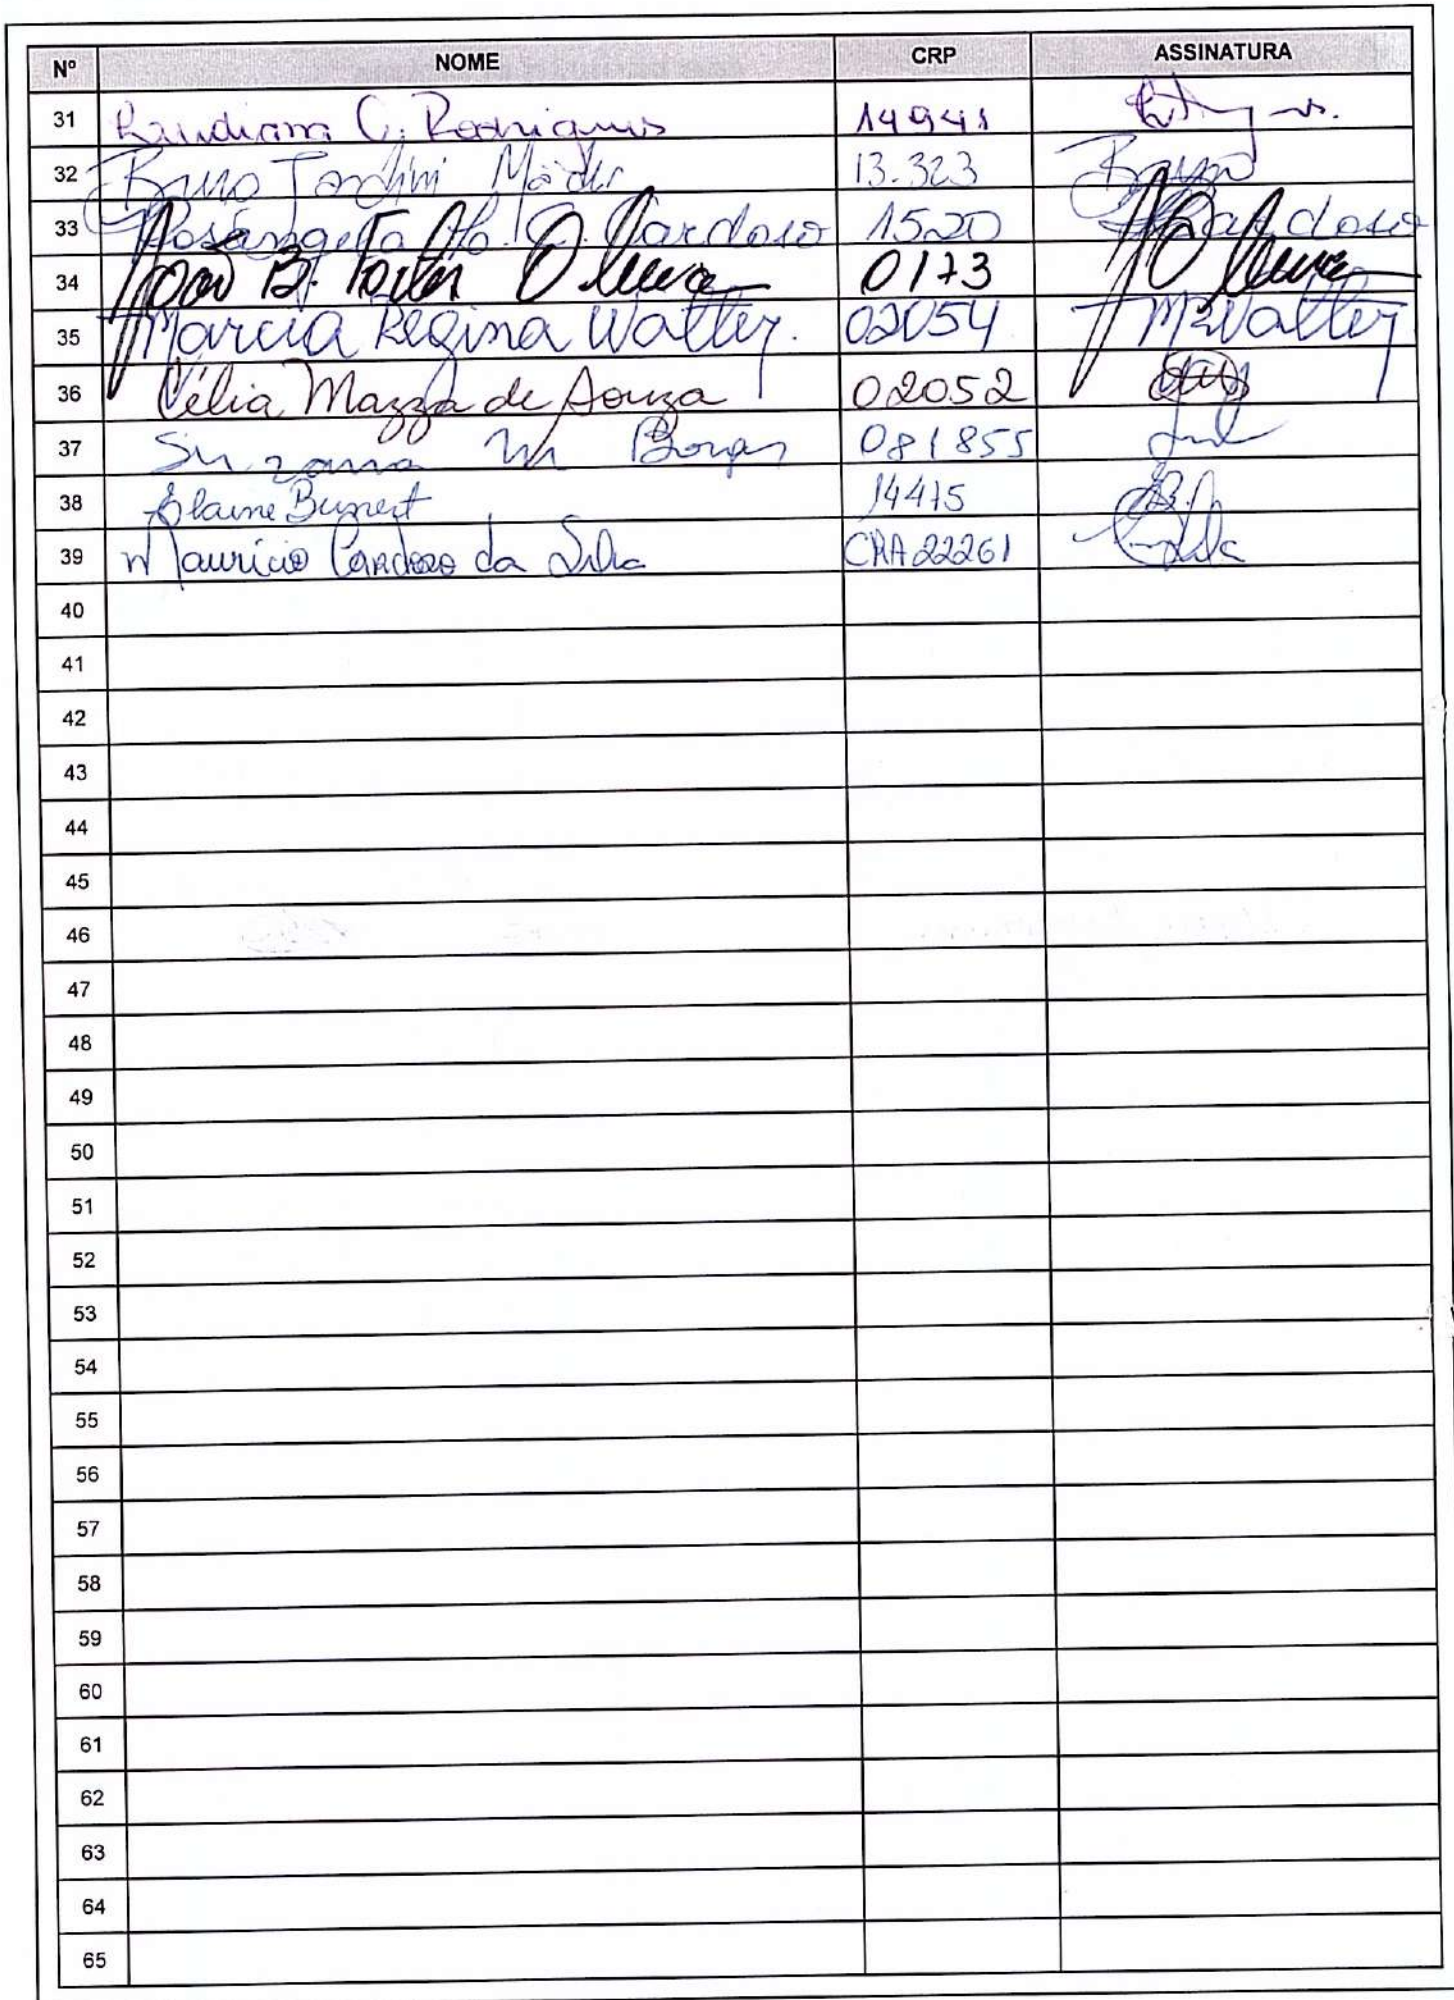 Nº NOME CRP ASSINATURA
31 C. Rodrigues 14941
32 Bruno Jardini Mäder 13.323 Bruno
33 Rosangela Cardoso 1520 Cardoso
34 João B. Fortes Oliveira 0173 Oliveira
35 Marcia Regina Walter. 02054 MRWalter
36 Célia Mazza de Souza 02052
37 Suzana M Borges 081855
38 Elaine 14415
39 Maurício Cardoso da Silva CRA 22261
40
41
42
43
44
45
46
47
48
49
50
51
52
53
54
55
56
57
58
59
60
61
62
63
64
65